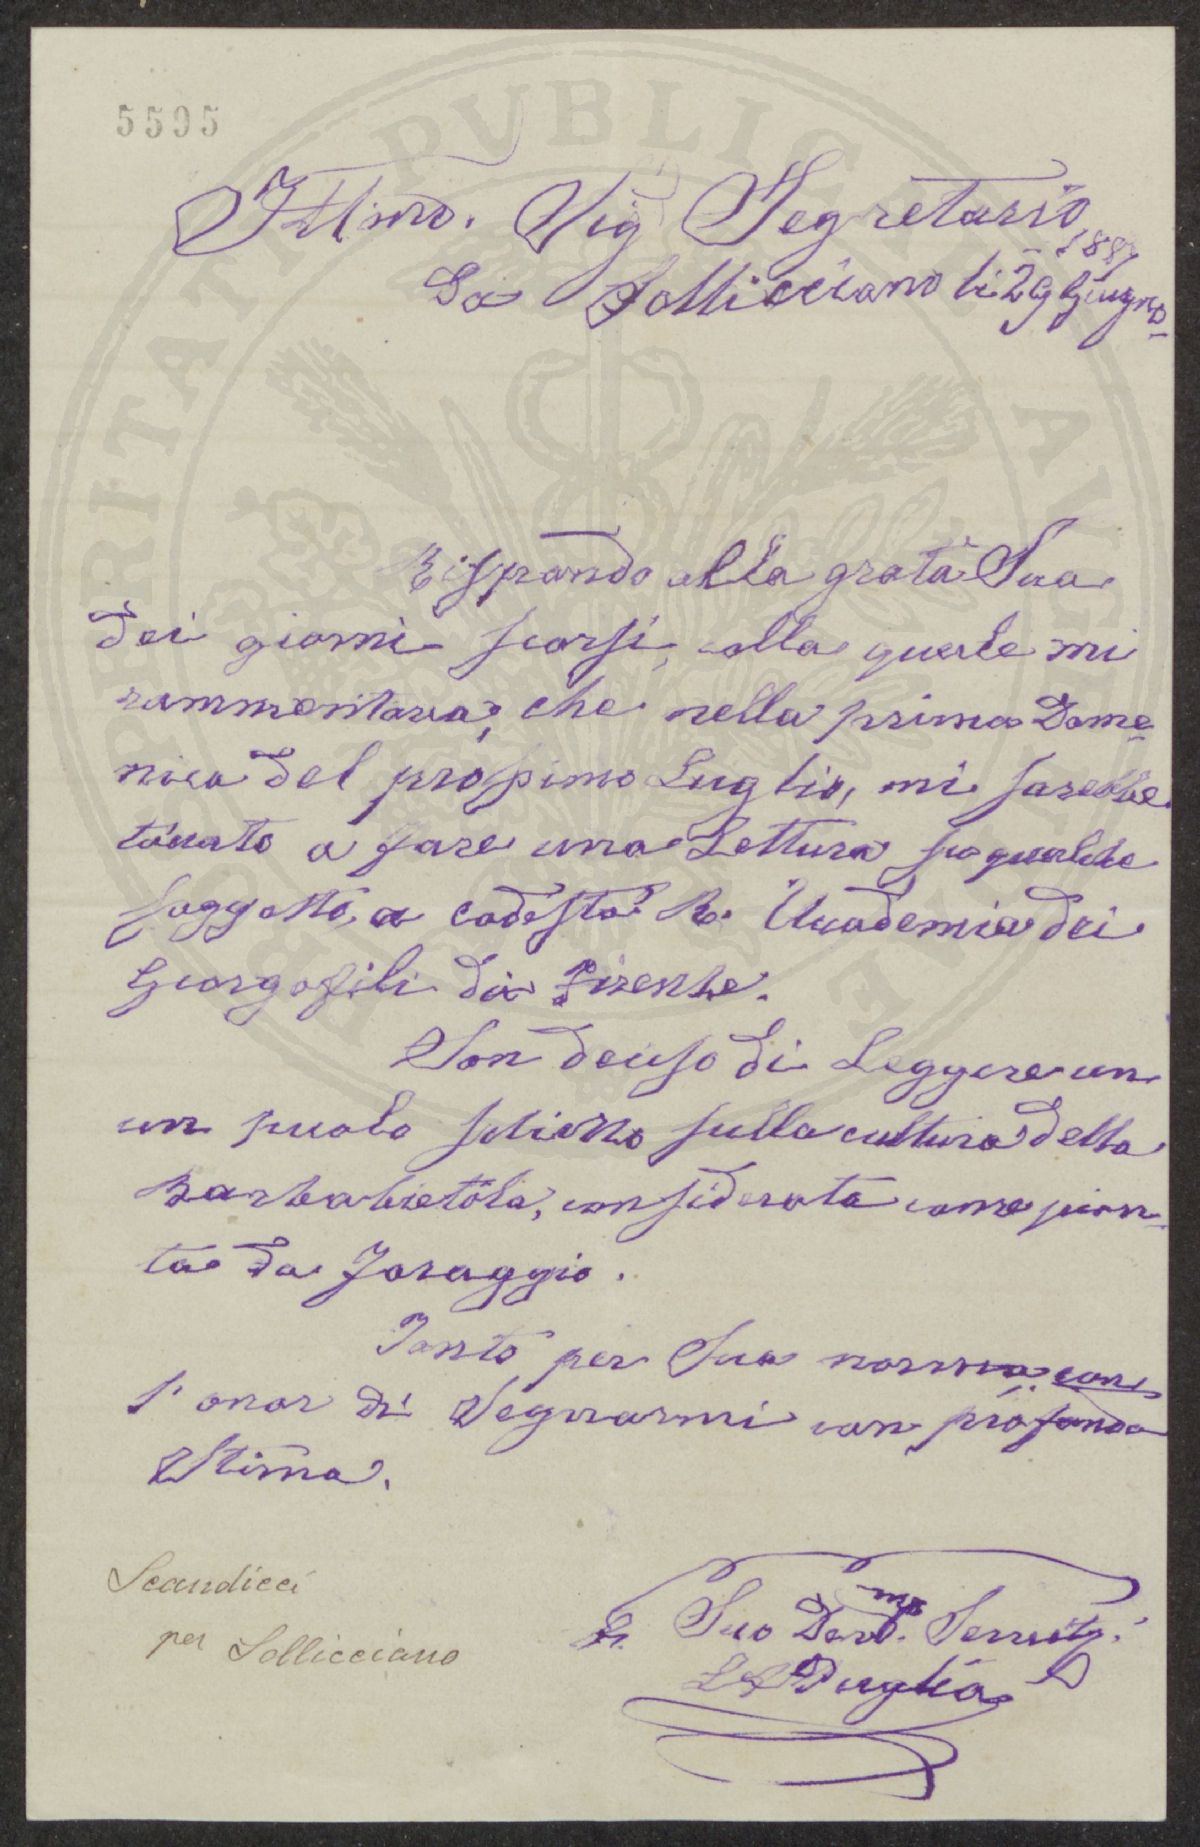 5595
Ill.mo. Sig Segretario
Da Sollicciano li 29 Giugno
Rispondo alla grata Sua
dei giorni scorsi, colla quale mi
rammentava, che nella prima Dome-
nica del prossimo Luglio, mi sarebbe
toccato a fare una Lettura su qualche
soggetto, a codesta R. Accademia dei
Georgofili di Firenze.
Son deciso di Leggere un
un picolo scritto sulla cultura della
Barbabietola, considerata come pian-
ta da Foraggio.
Tanto per Sua norma, con
l'onor di Segnarmi con profonda
Stima.
Suo Dev.mo Servitr.
Puglia
Scandicci
per Sollicciano
PROSPERITATI PUBLICAE AUGENDAE